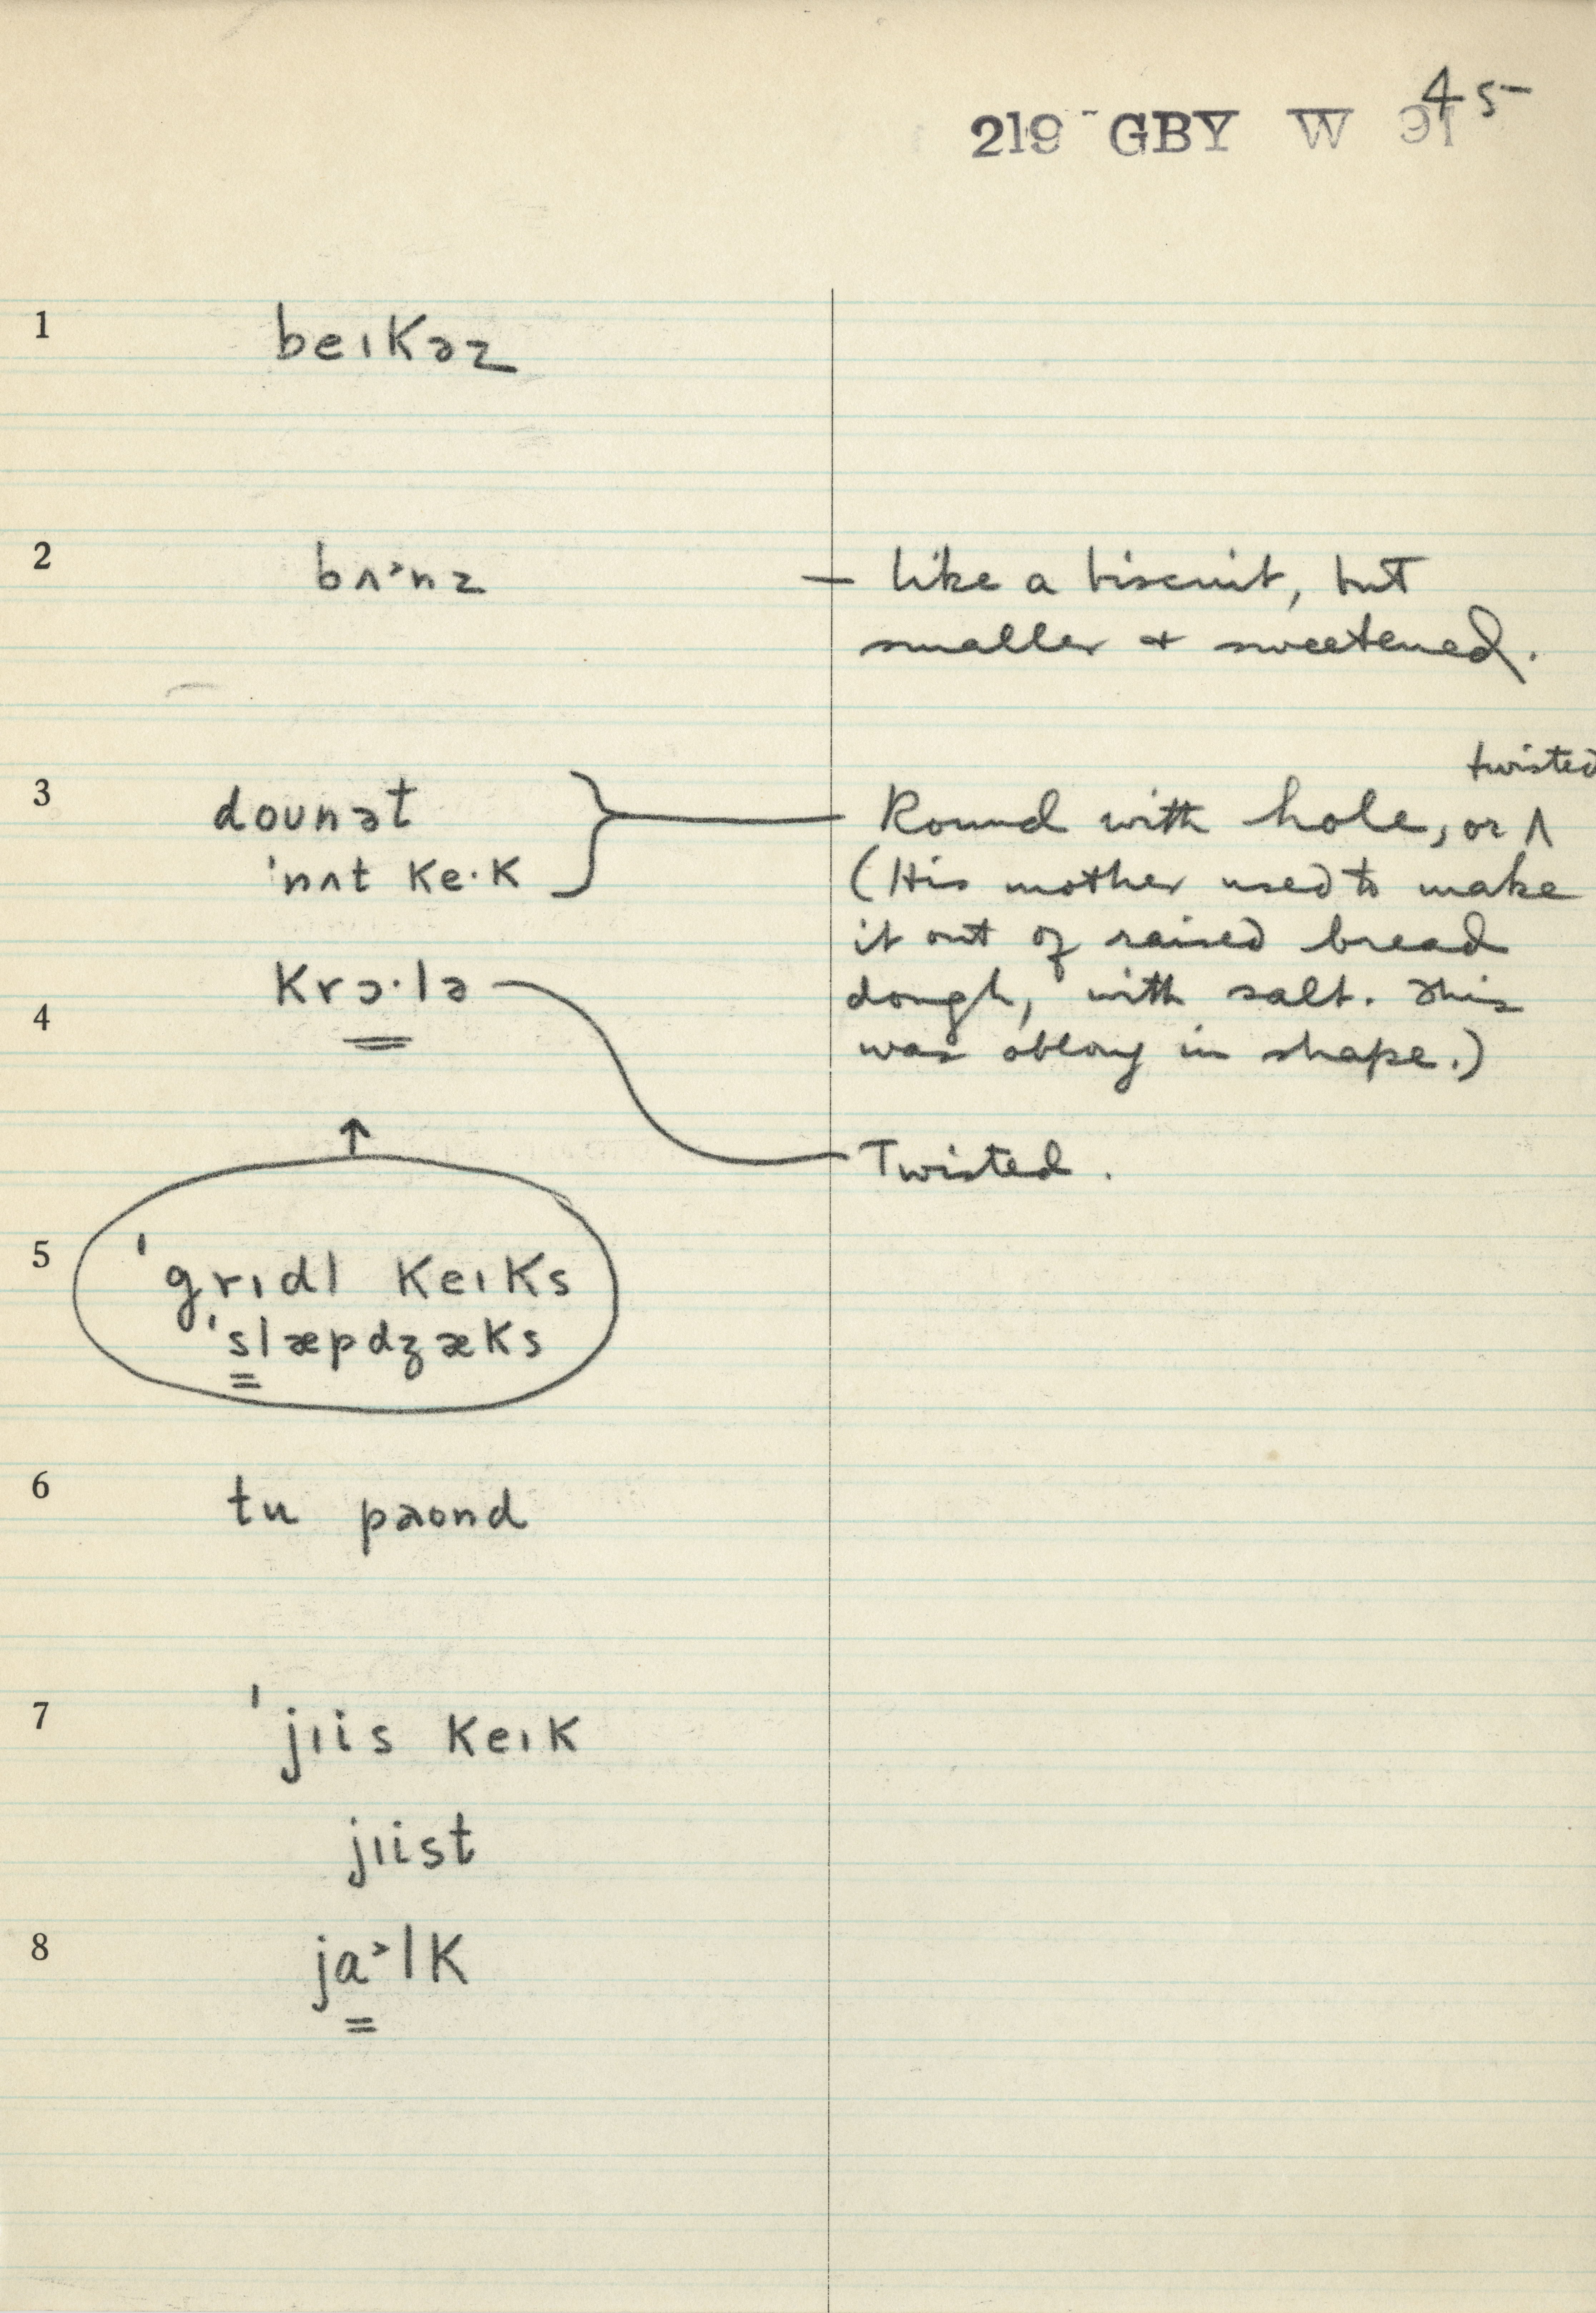 45
219 GBY W 91
1 beɪkəz
2 bʌ˃nz — like a biscuit, but
smaller + sweetened.
twisted
3 doʊnət Round with hole, or ∧
ˈnʌt ke·k (His mother used to make
it out of raised bread
4 krɔ·lə dough, with salt. This
was oblong in shape.)
↑ Twisted.
5 ˈgrɪdl keɪks
ˈslæpdʒæks
6 tu paʊnd
7 ˈjɪis keɪk
jɪist
8 ja˃lk